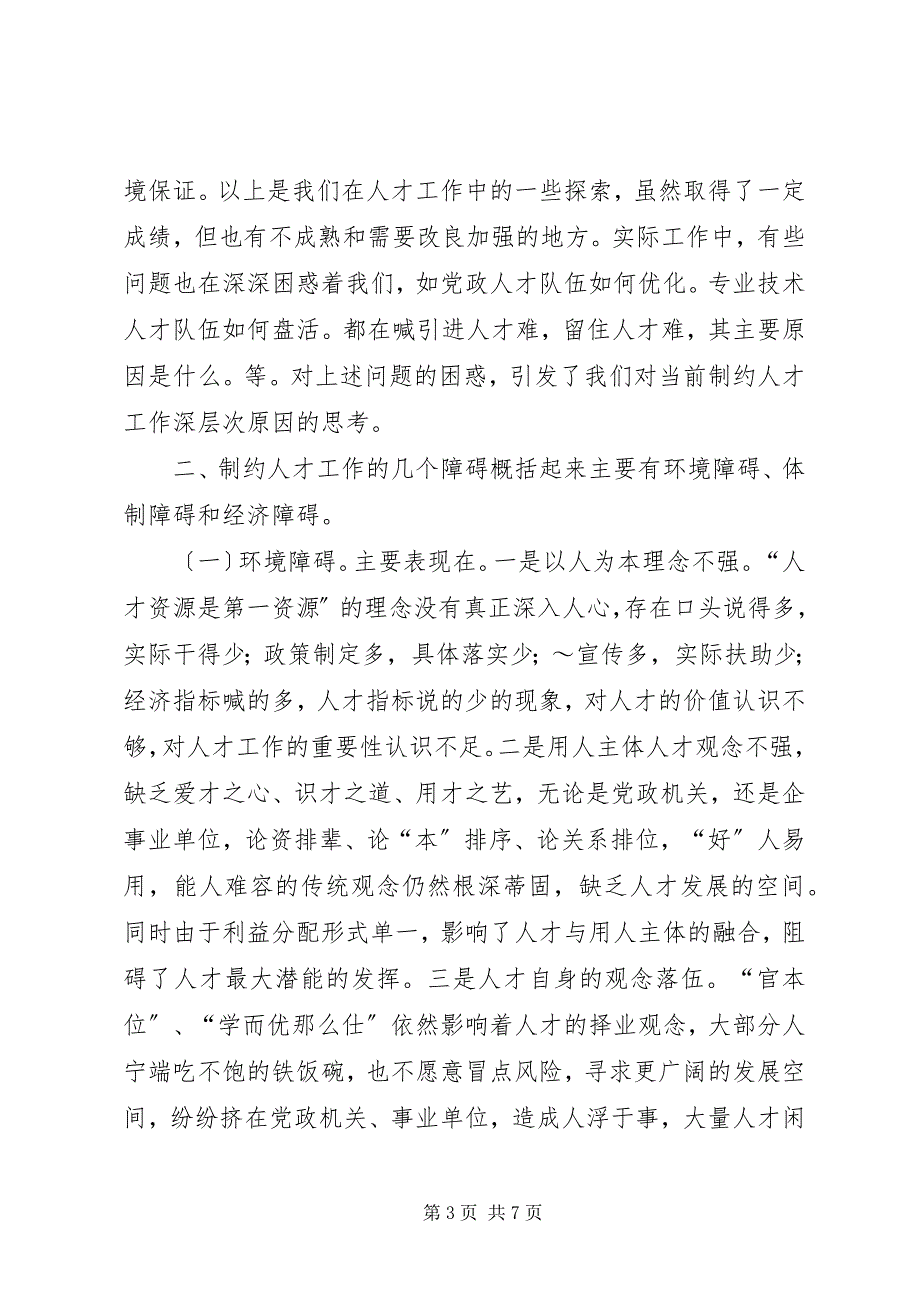 境保证。以上是我们在人才工作中的一些探索，虽然取得了一定
成绩，但也有不成熟和需要改良加强的地方。实际工作中，有些
问题也在深深困惑着我们，如党政人才队伍如何优化。专业技术
人才队伍如何盘活。都在喊引进人才难，留住人才难，其主要原
因是什么。等。对上述问题的困惑，引发了我们对当前制约人才
工作深层次原因的思考。
二、制约人才工作的几个障碍概括起来主要有环境障碍、体
制障碍和经济障碍。
〔一〕环境障碍。主要表现在。一是以人为本理念不强。“人
才资源是第一资源〞的理念没有真正深入人心，存在口头说得多，
实际干得少；政策制定多，具体落实少；～宣传多，实际扶助少；
经济指标喊的多，人才指标说的少的现象，对人才的价值认识不
够，对人才工作的重要性认识不足。二是用人主体人才观念不强，
缺乏爱才之心、识才之道、用才之艺，无论是党政机关，还是企
事业单位，论资排辈、论“本〞排序、论关系排位，“好〞人易
用，能人难容的传统观念仍然根深蒂固，缺乏人才发展的空间。
同时由于利益分配形式单一，影响了人才与用人主体的融合，阻
碍了人才最大潜能的发挥。三是人才自身的观念落伍。“官本
位〞、“学而优那么仕〞依然影响着人才的择业观念，大部分人
宁端吃不饱的铁饭碗，也不愿意冒点风险，寻求更广阔的发展空
间，纷纷挤在党政机关、事业单位，造成人浮于事，大量人才闲
第 3 页 共 7 页